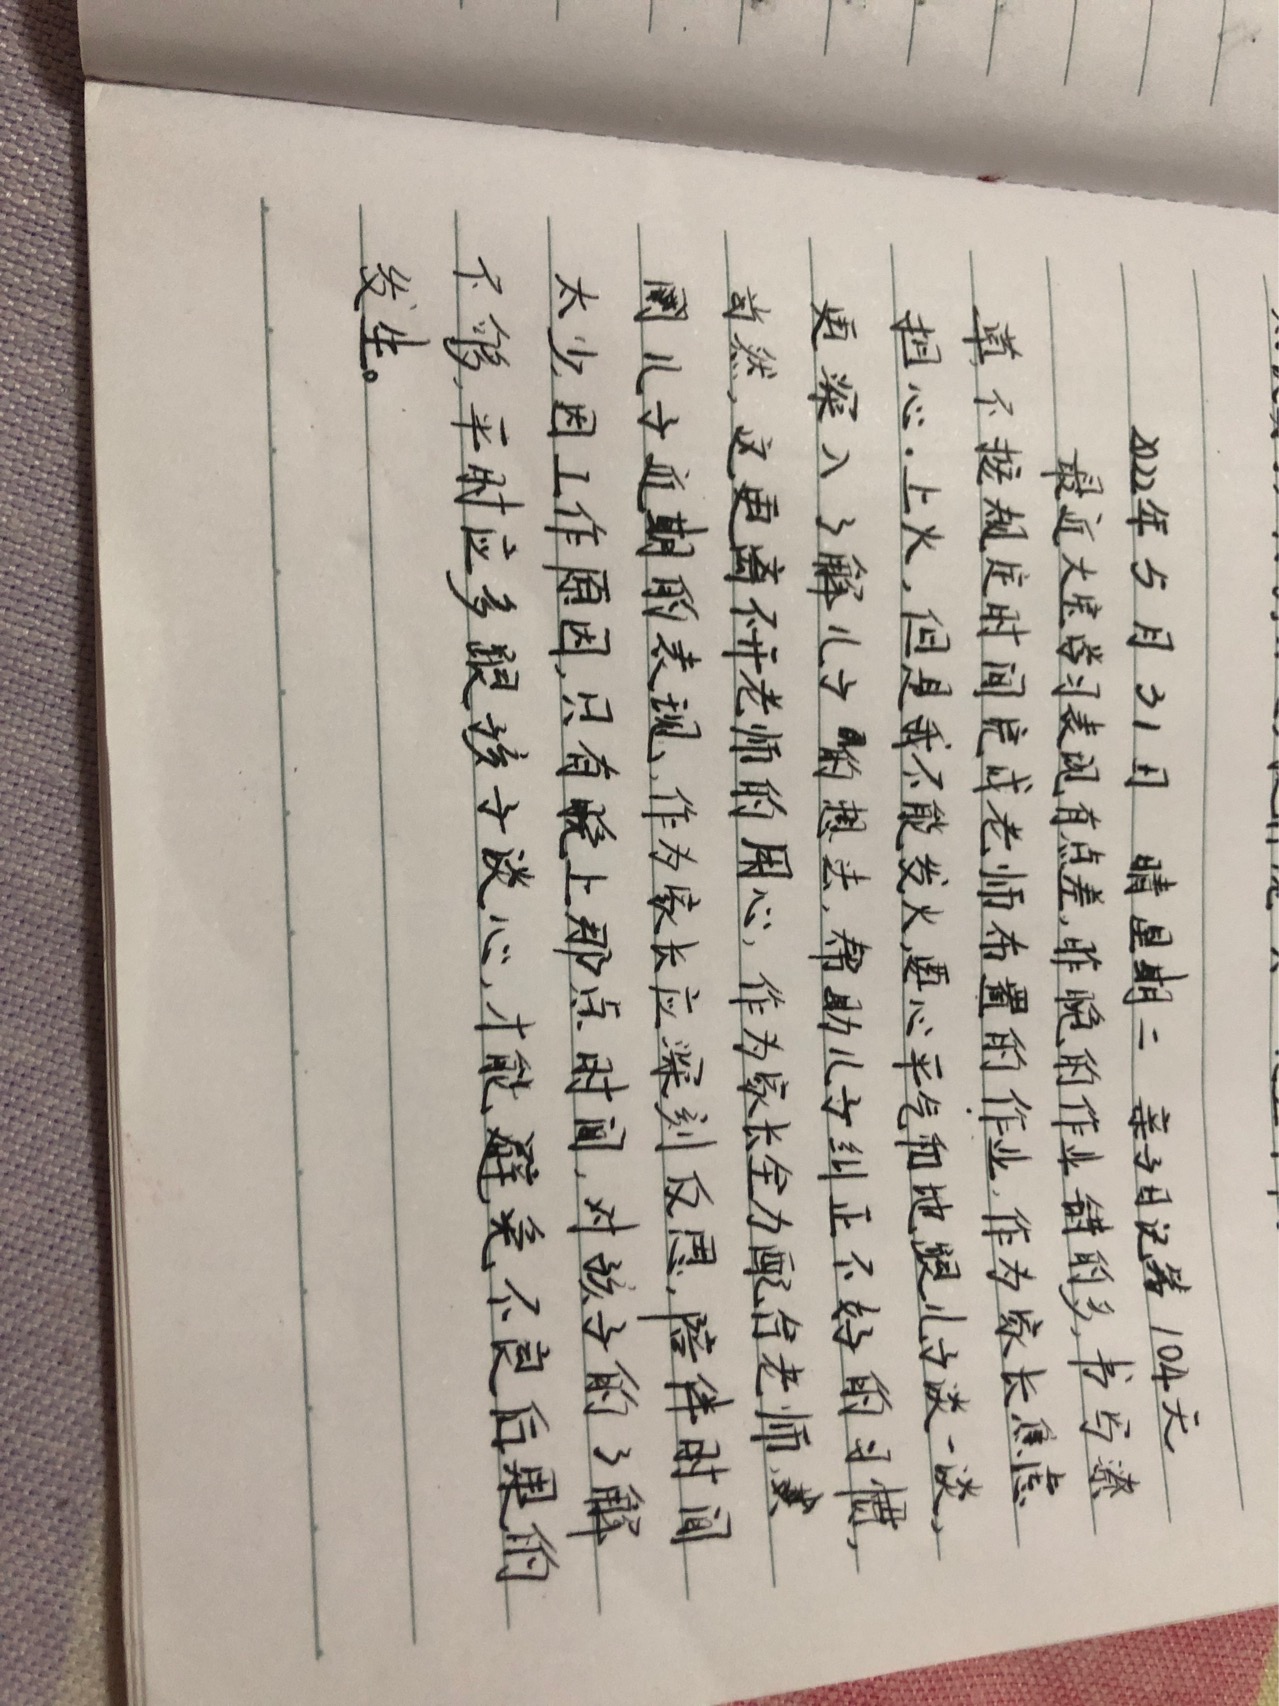 2022年5月31日 晴星期二 亲子日记第104天
最近大宝学习表现有点差,昨晚的作业错的多,书写潦
草,不按规定时间完成老师布置的作业,作为家长焦虑
担心.上火,但是我不能发火,要心平气和地跟儿子谈一谈,
更深入了解儿子的想法,帮助儿子纠正不好的习惯,
当然,这更离不开老师的用心,作为家长全力配合老师,
儿子近期的表现,作为家长应深刻反思,陪伴时间
太少,因工作原因,只有晚上那点时间,对孩子的了解
不够,平时应多跟孩子谈心,才能避免不良后果的
发生。